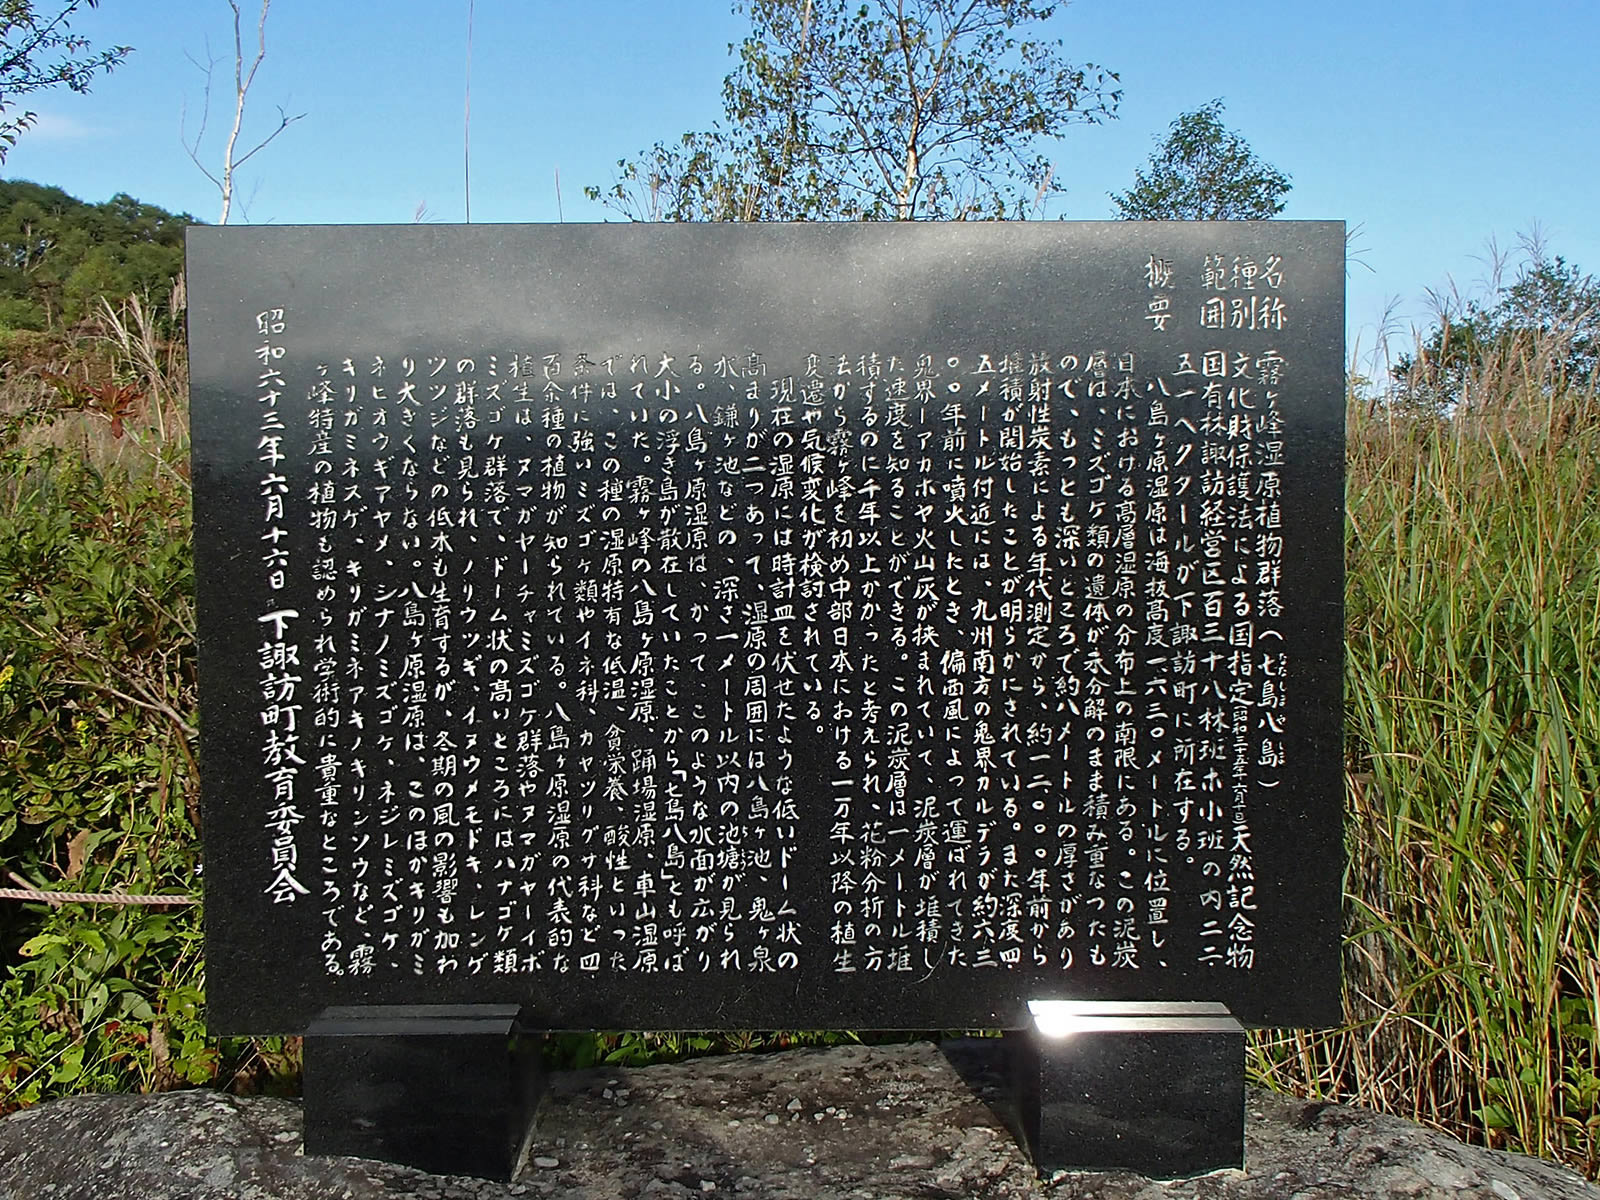 名称 霧ヶ峰湿原植物群落(七島八島)
種別 文化財保護法による国指定(昭和三十五年六月十日)天然記念物
範囲 国有林諏訪経営区百三十八林班ホ小班の内二二・
五一ヘクタールが下諏訪町に所在する。
概要 八島ヶ原湿原は海抜高度一、六三〇メートルに位置し、
日本における高層湿原の分布上の南限にある。この泥炭
層は、ミズゴケ類の遺体が未分解のまま積み重なったも
ので、もっとも深いところで約八メートルの厚さがあり
放射性炭素による年代測定から、約一二〇〇〇年前から
堆積が開始したことが明らかにされている。また深度四・
五メートル付近には、九州南方の鬼界カルデラが約六、三
〇〇年前に噴火したとき、偏西風によって運ばれてきた
鬼界―アカホヤ火山灰が挟まれていて、泥炭層が堆積し
た速度を知ることができる。この泥炭層は一メートル堆
積するのに千年以上かかったと考えられ、花粉分折の方
法から霧ヶ峰を初め中部日本における一万年以降の植生
変遷や気候変化が検討されている。
現在の湿原には時計皿を伏せたような低いドーム状の
高まりが二つあって、湿原の周囲には八島ヶ池、鬼ヶ泉
水、鎌ヶ池などの、深さ一メートル以内の池塘が見られ
る。八島ヶ原湿原は、かって、このような水面が広がり
大小の浮き島が散在していたことから「七島八島」とも呼ば
れていた。霧ヶ峰の八島ヶ原湿原、踊場湿原、車山湿原
では、この種の湿原特有な低温、貧栄養、酸性といった
条件に強いミズゴケ類やイネ科、カヤツリグサ科など四
百余種の植物が知られている。八島ヶ原湿原の代表的な
植生は、ヌマガヤーチャミズゴケ群落やヌマガヤーイボ
ミズゴケ群落で、ドーム状の高いところにはハナゴケ類
の群落も見られ、ノリウツギ、イヌウメモドキ、レンゲ
ツツジなどの低木も生育するが、冬期の風の影響も加わ
り大きくならない。八島ヶ原湿原は、このほかキリガミ
ネヒオウギアヤメ、シナノミズゴケ、ネジレミズゴケ、
キリガミネスゲ、キリガミネアキノキリンソウなど、霧
ヶ峰特産の植物も認められ学術的に貴重なところである。
昭和六十三年六月十六日 下諏訪町教育委員会